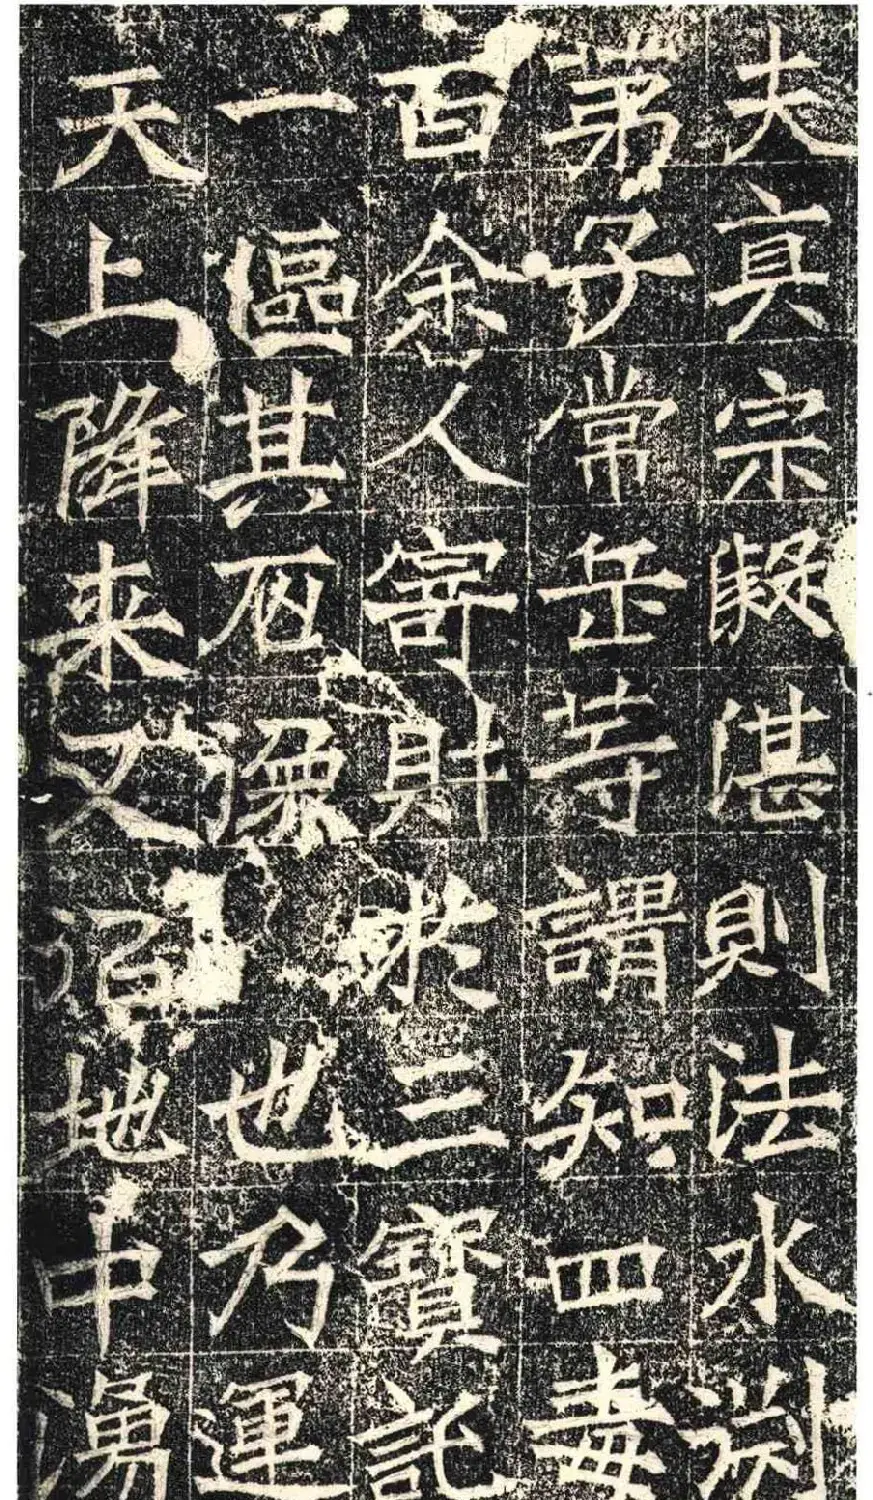 夫真宗凝湛則法水渊
弟子常岳等謂知四毒
百余人寄財於三寶託
一區其石像也乃運
天上降来又似地中湧